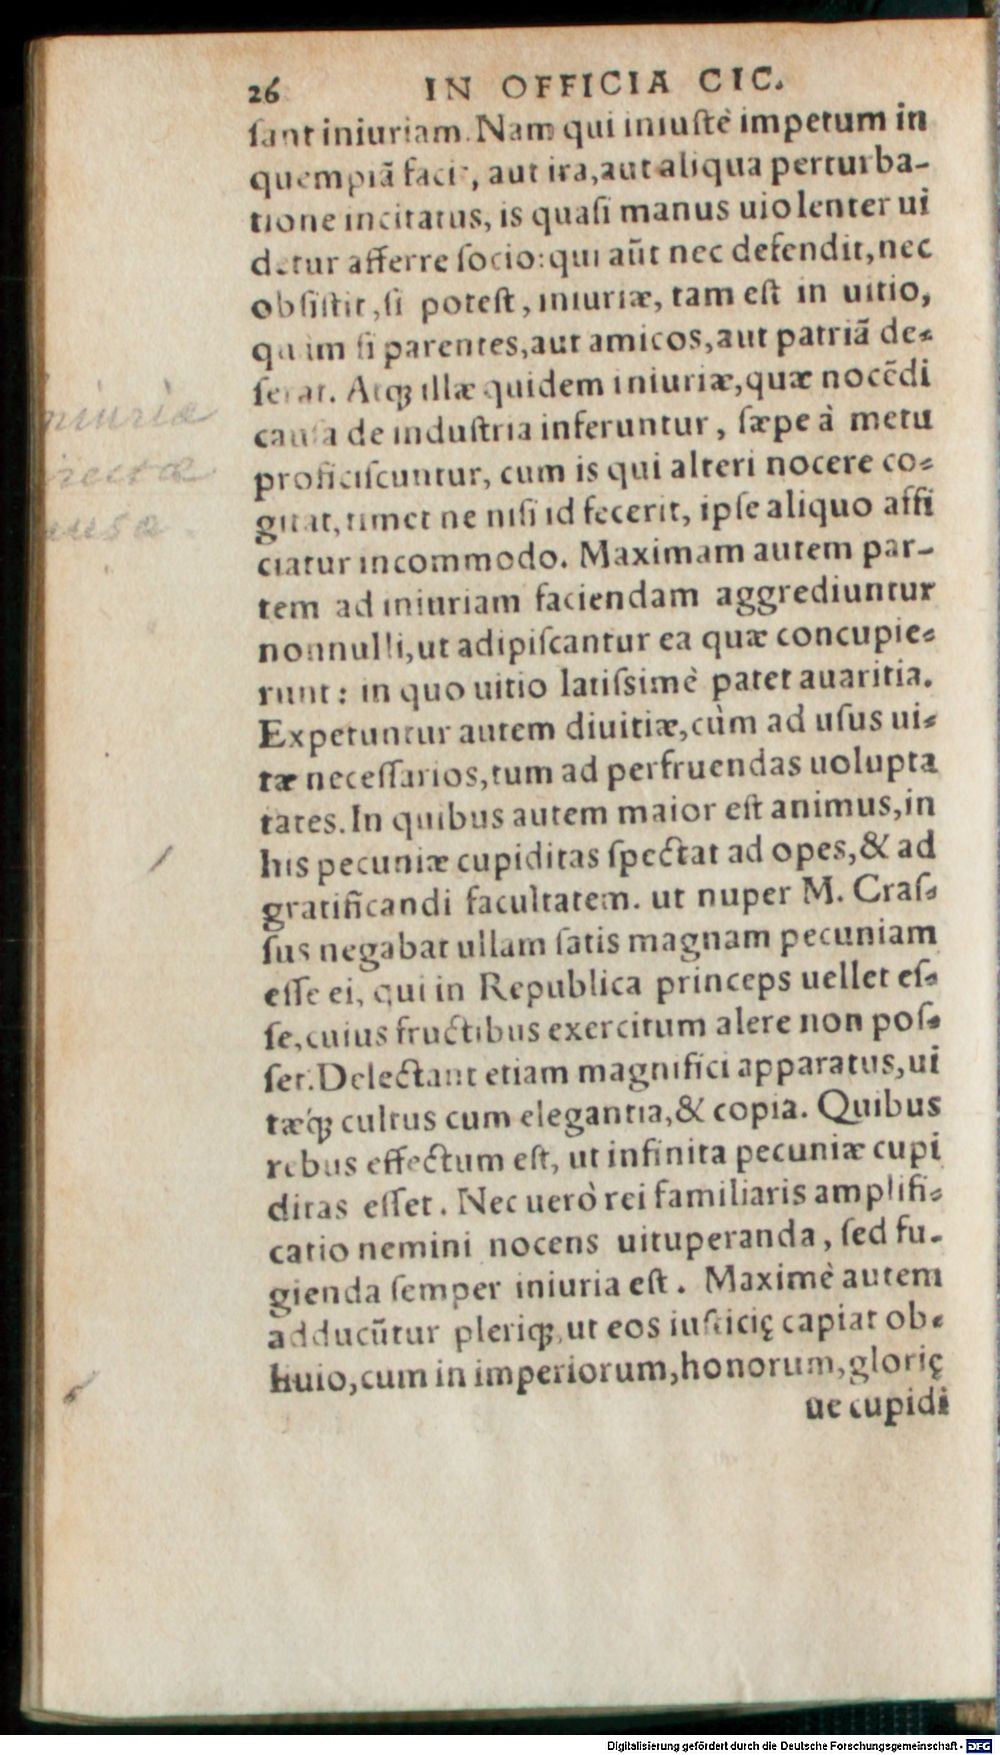 26 IN OFFICIA CIC.
ſant iniuriam. Nam qui iniuſtè impetum in
quempiã facit, aut ira, aut aliqua perturba-
tione incitatus, is quaſi manus uiolenter ui
detur afferre ſocio: qui aũt nec defendit, nec
obſiſtit, ſi poteſt, iniuriæ, tam eſt in uitio,
quàm ſi parentes, aut amicos, aut patriã de-
ſerat. Atq; illæ quidem iniuriæ, quæ nocẽdi
cauſa de induſtria inferuntur, ſæpe à metu
proficiſcuntur, cum is qui alteri nocere co-
gitat, timet ne niſi id fecerit, ipſe aliquo affi
ciatur incommodo. Maximam autem par-
tem ad iniuriam faciendam aggrediuntur
nonnulli, ut adipiſcantur ea quæ concupie-
runt: in quo uitio latiſsimè patet auaritia.
Expetuntur autem diuitiæ, cùm ad uſus ui-
tæ neceſſarios, tum ad perfruendas uolupta
tates. In quibus autem maior eſt animus, in
his pecuniæ cupiditas ſpectat ad opes, & ad
gratificandi facultatem. ut nuper M. Craſ-
ſus negabat ullam ſatis magnam pecuniam
eſſe ei, qui in Republica princeps uellet eſ-
ſe, cuius fructibus exercitum alere non poſ-
ſet. Delectant etiam magnifici apparatus, ui
tæq́; cultus cum elegantia, & copia. Quibus
rebus effectum eſt, ut infinita pecuniæ cupi
ditas eſſet. Nec uerò rei familiaris amplifi-
catio nemini nocens uituperanda, ſed fu-
gienda ſemper iniuria eſt. Maximè autem
adducũtur pleriq;, ut eos iuſticię capiat ob-
liuio, cum in imperiorum, honorum, glorię
ue cupidi
Digitalisierung gefördert durch die Deutsche Forschungsgemeinschaft - DFG